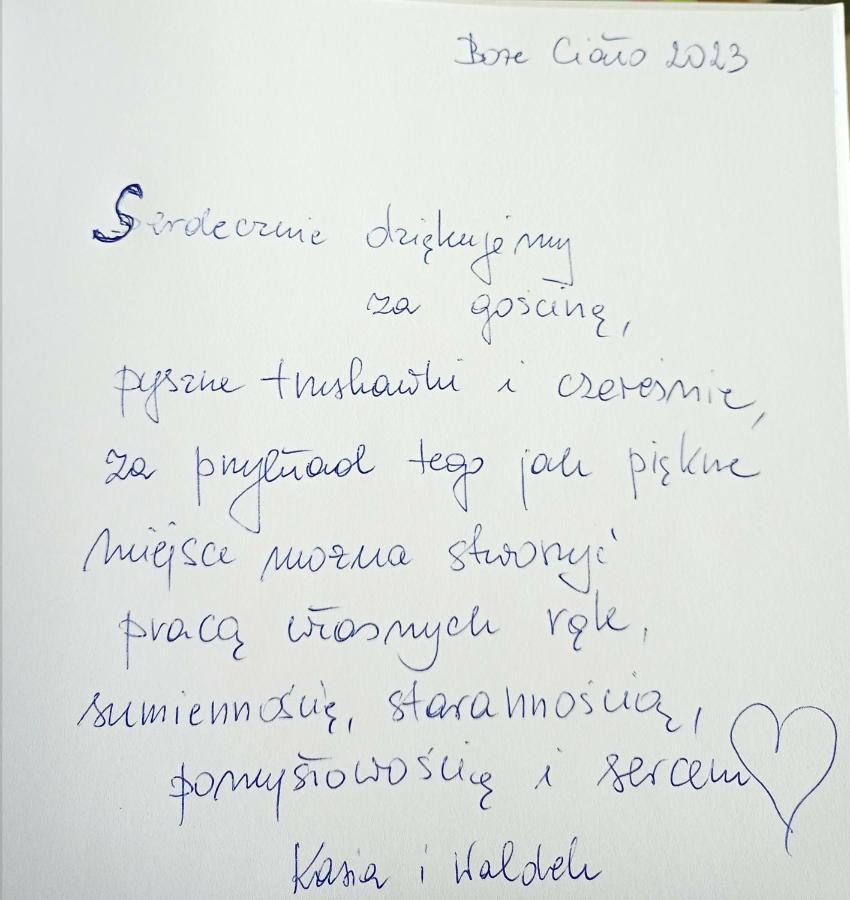 Boże Ciało 2023
Serdecznie dziękujemy
za gościnę,
pyszne truskawki i czereśnie,
za przykład tego jak piękne
miejsce można stworzyć
pracą własnych rąk,
sumiennością, starannością,
pomysłowością i sercem
Kasia i Waldek